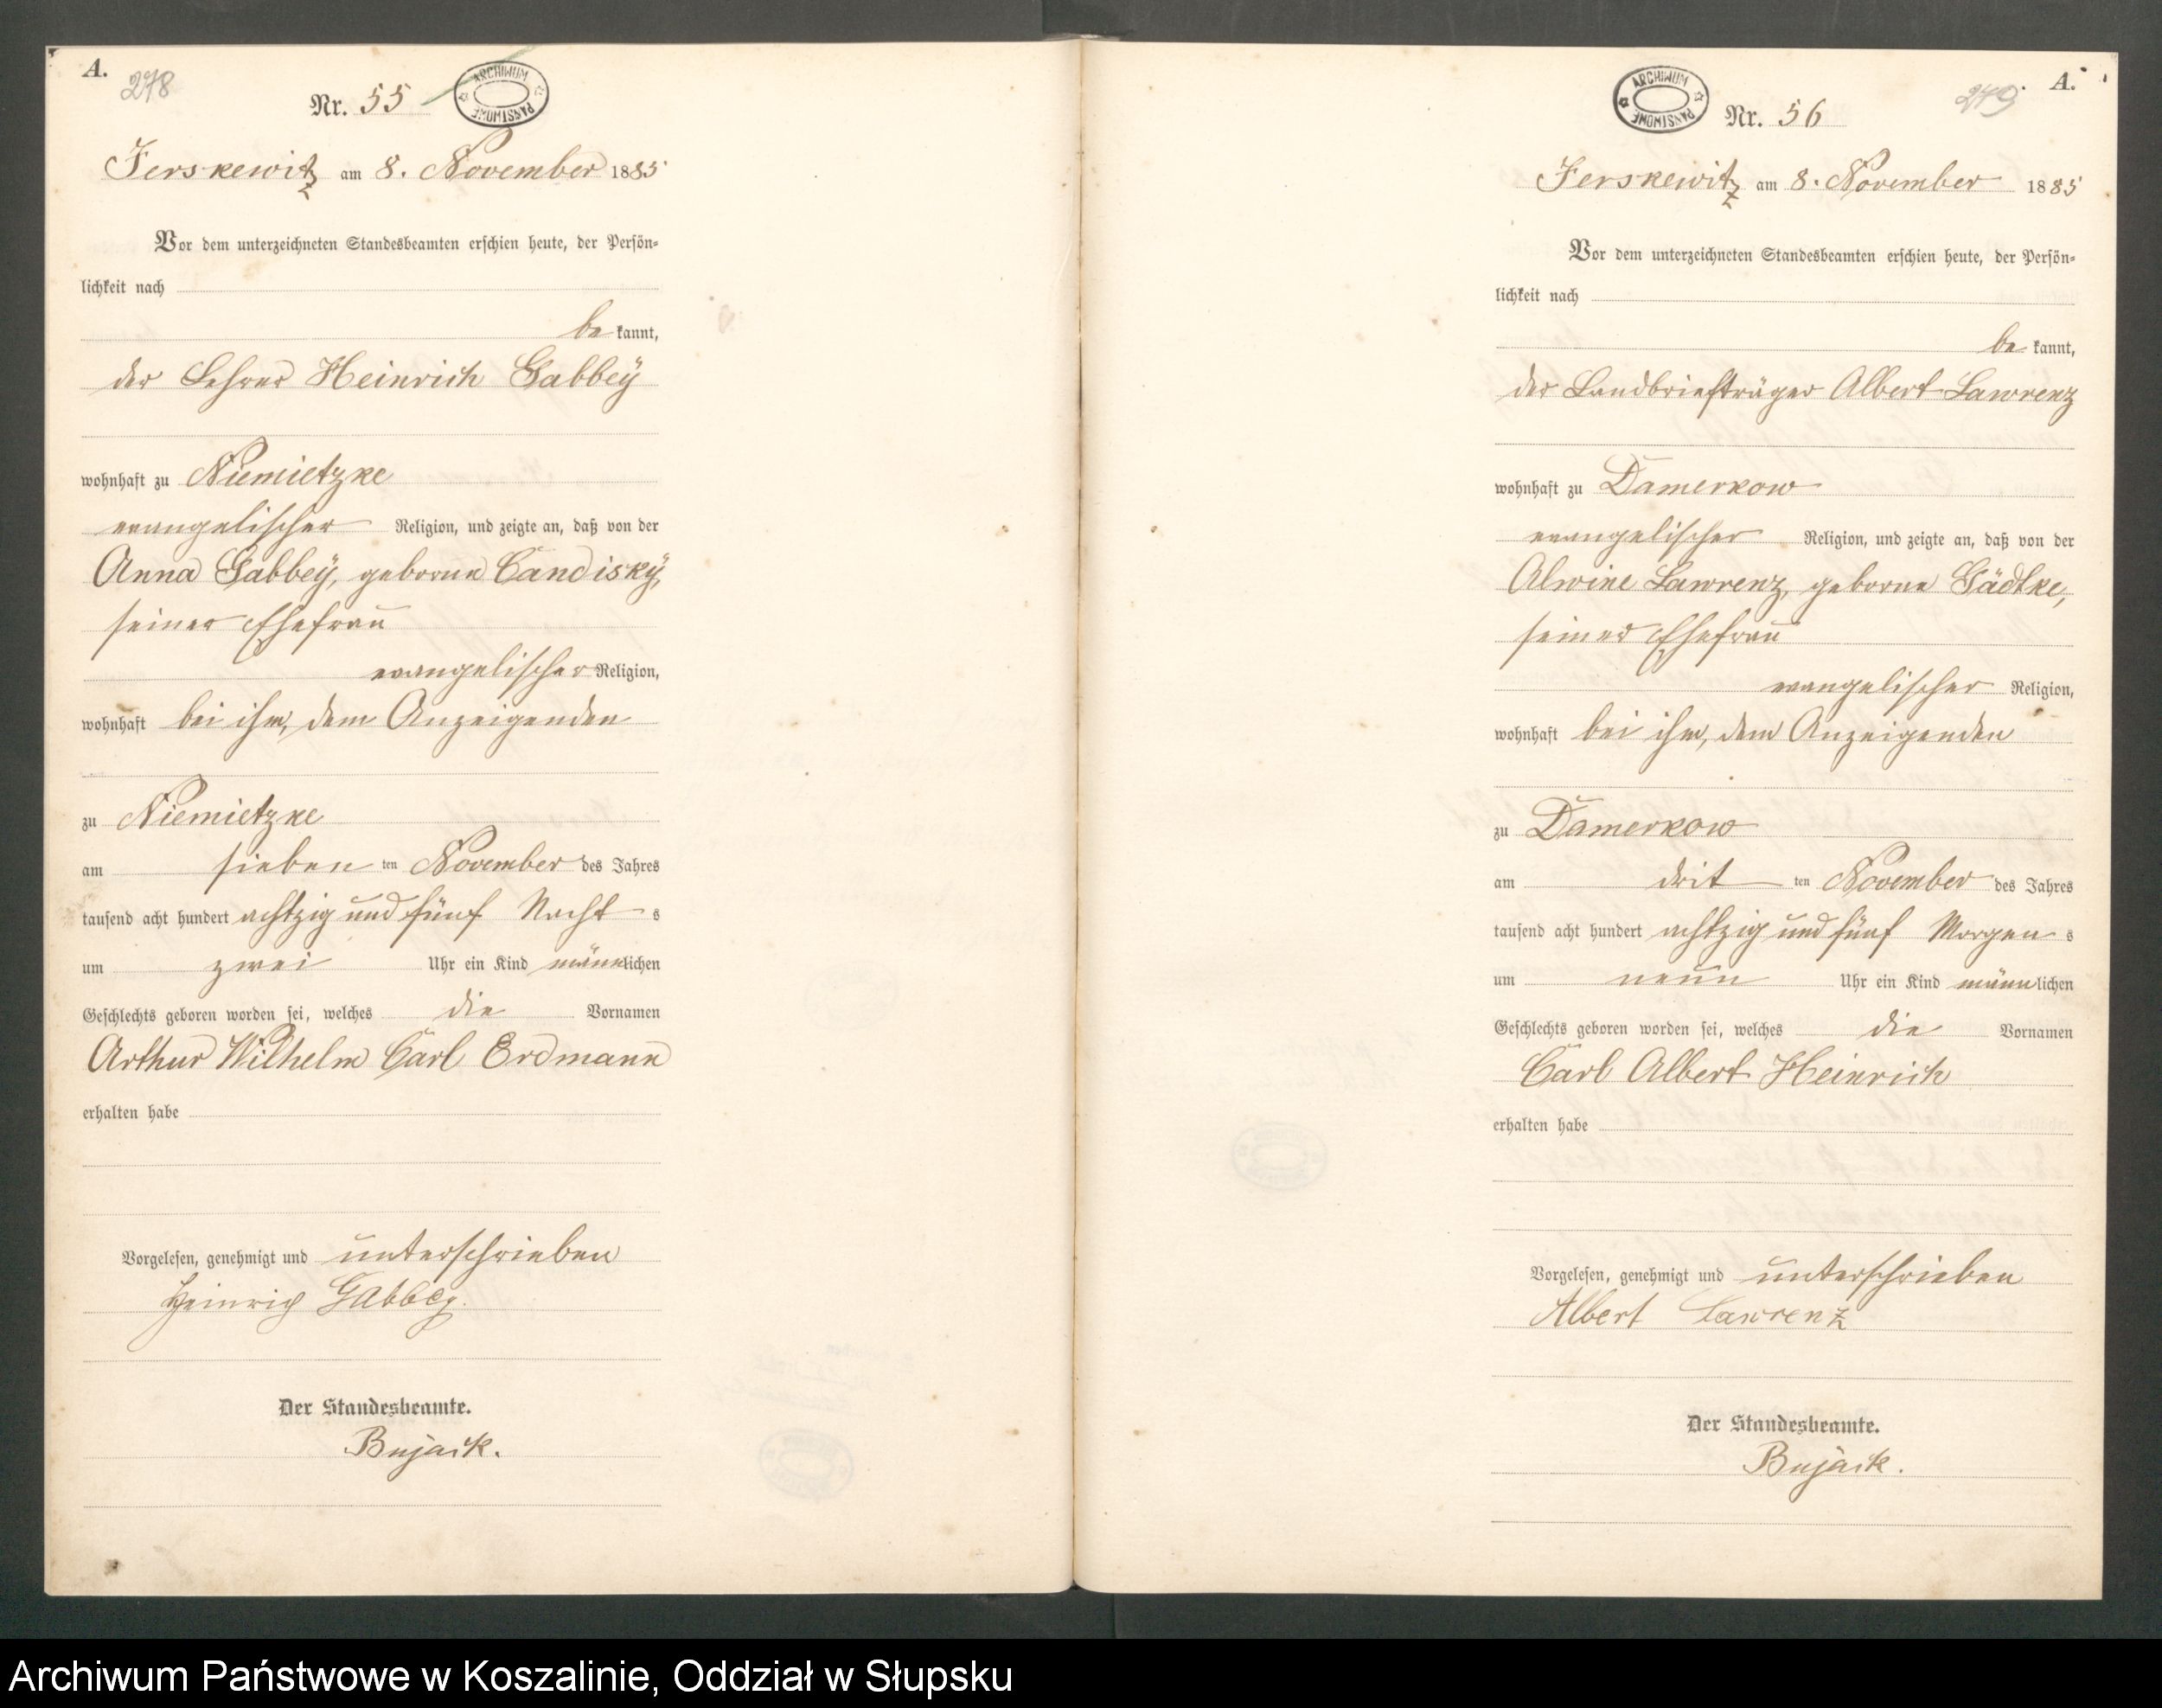 A.
278
Nr. 55
ARCHIWUM PAŃSTWOWE
Jerskewitz am 8. November 1885
Vor dem unterzeichneten Standesbeamten erschien heute, der Persön-
lichkeit nach
be kannt,
der Lehrer Heinrich Gabbeÿ
wohnhaft zu Niemietzke
evangelischer Religion, und zeigte an, daß von der
Anna Gabbeÿ, geborne Candiskÿ,
seiner Ehefrau
evangelischer Religion,
wohnhaft bei ihm, dem Anzeigenden
zu Niemietzke
am sieben ten November des Jahres
tausend acht hundert achtzig und fünf Nacht s
um zwei Uhr ein Kind männlichen
Geschlechts geboren worden sei, welches die Vornamen
Arthur Wilhelm Carl Erdmann
erhalten habe
Vorgelesen, genehmigt und unterschrieben
Heinrich Gabbey.
Der Standesbeamte.
Bujack.
A.
249
ARCHIWUM PAŃSTWOWE
Nr. 56
Jerskewitz am 8. November 1885
Vor dem unterzeichneten Standesbeamten erschien heute, der Persön-
lichkeit nach
be kannt,
der Landbriefträger Albert Lawrenz
wohnhaft zu Damerkow
evangelischer Religion, und zeigte an, daß von der
Alwine Lawrenz, geborne Gädtke,
seiner Ehefrau
evangelischer Religion,
wohnhaft bei ihm, dem Anzeigenden
zu Damerkow
am drit ten November des Jahres
tausend acht hundert achtzig und fünf Morgen s
um neun Uhr ein Kind männlichen
Geschlechts geboren worden sei, welches die Vornamen
Carl Albert Heinrich
erhalten habe
Vorgelesen, genehmigt und unterschrieben
Albert Lawrenz
Der Standesbeamte.
Bujack.
Archiwum Państwowe w Koszalinie, Oddział w Słupsku